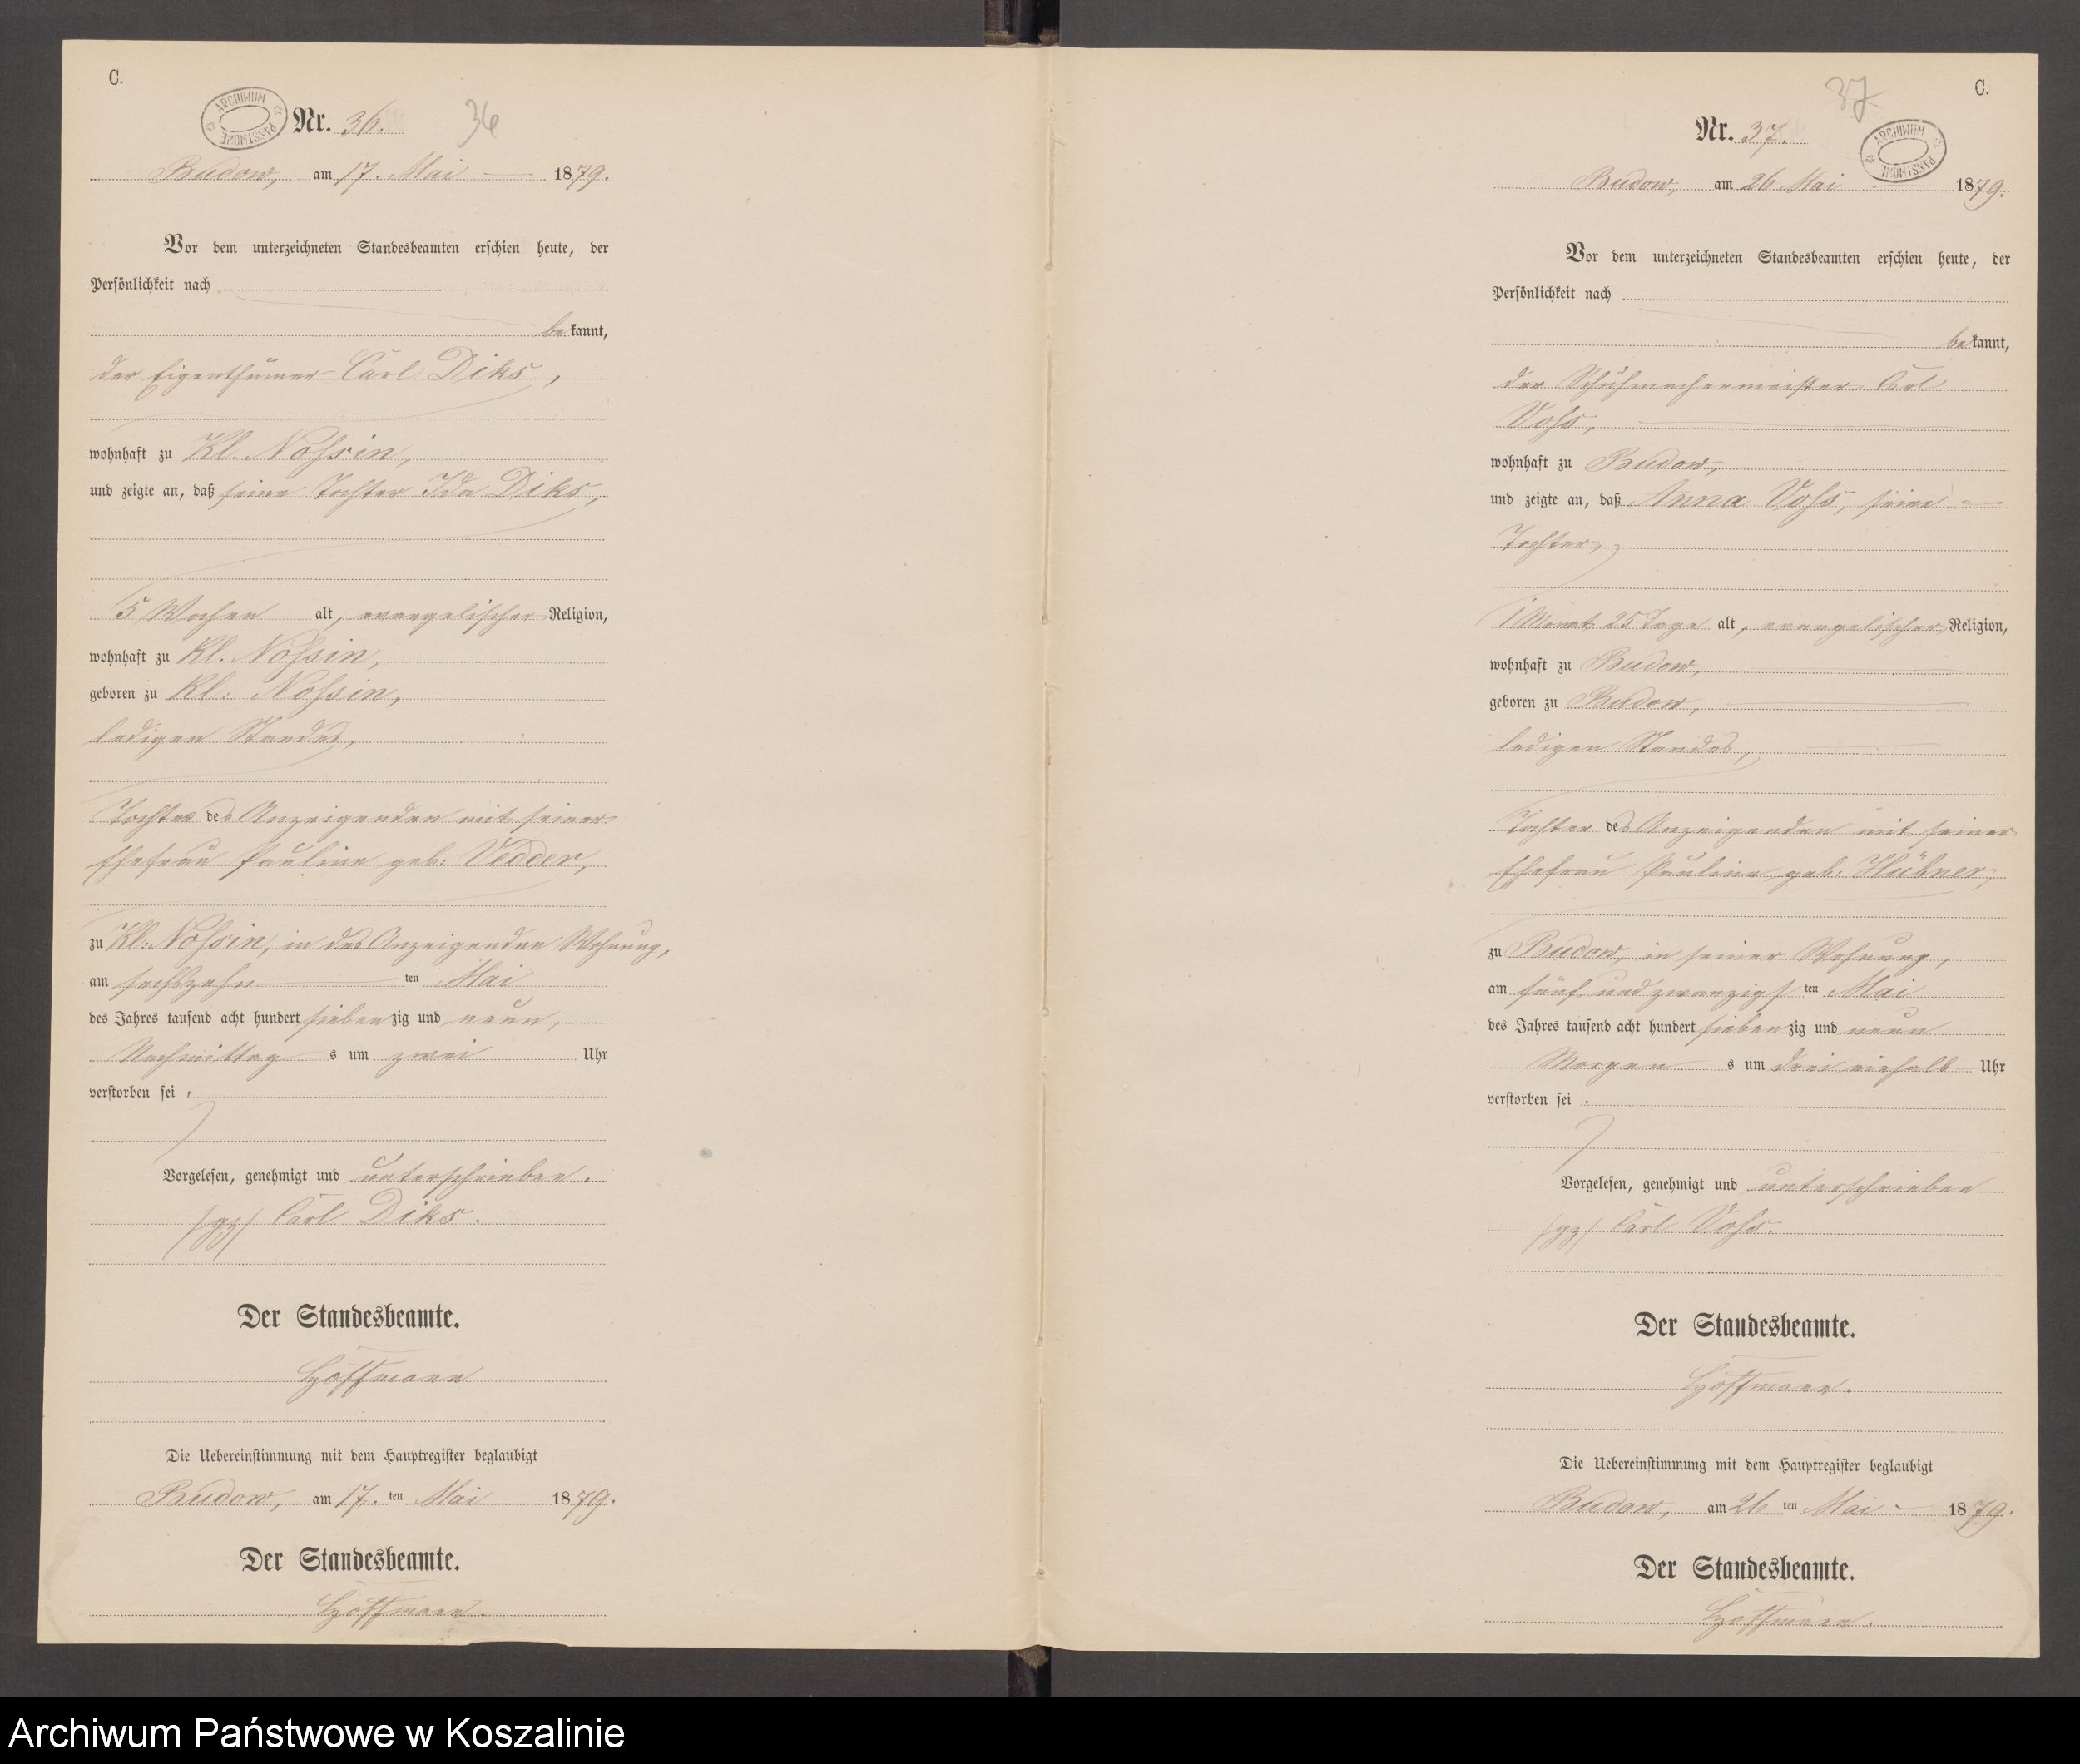 C.
ARCHIWUM PAŃSTWOWE
Nr. 36.
36
Budow, am 17. Mai 1879.
Vor dem unterzeichneten Standesbeamten erschien heute, der
Persönlichkeit nach
bekannt,
der Eigenthümer Carl Diks,
wohnhaft zu Kl. Nossin,
und zeigte an, daß seine Tochter Ida Diks,
5 Wochen alt, evangelischer Religion,
wohnhaft zu Kl. Nossin,
geboren zu Kl. Nossin,
ledigen Standes,
Tochter des Anzeigenden mit seiner
Ehefrau Pauline geb: Vedder,
zu Kl. Nossin, in des Anzeigenden Wohnung,
am sechszehnten Mai
des Jahres tausend acht hundert siebenzig und neun,
Nachmittags um zwei Uhr
verstorben sei.
Vorgelesen, genehmigt und unterschrieben.
/gz/ Carl Diks.
Der Standesbeamte.
Hoffmann
Die Uebereinstimmung mit dem Hauptregister beglaubigt
Budow, am 17. ten Mai 1879.
Der Standesbeamte.
Hoffmann.
C.
37
Nr. 37.
ARCHIWUM PAŃSTWOWE
Budow, am 26 Mai 1879.
Vor dem unterzeichneten Standesbeamten erschien heute, der
Persönlichkeit nach
bekannt,
der Schuhmachermeister Carl
Voss,
wohnhaft zu Budow,
und zeigte an, daß Anna Voss, seine
Tochter,
1 Monat 25 Tage alt, evangelischer Religion,
wohnhaft zu Budow,
geboren zu Budow,
ledigen Standes,
Tochter des Anzeigenden mit seiner
Ehefrau Pauline geb: Hübner,
zu Budow, in seiner Wohnung,
am fünf und zwanzigsten Mai
des Jahres tausend acht hundert siebenzig und neun
Morgens um drei Uhr
verstorben sei.
Vorgelesen, genehmigt und unterschrieben
/gz/ Carl Voss.
Der Standesbeamte.
Hoffmann.
Die Uebereinstimmung mit dem Hauptregister beglaubigt
Budow, am 26 ten Mai 1879.
Der Standesbeamte.
Hoffmann.
Archiwum Państwowe w Koszalinie